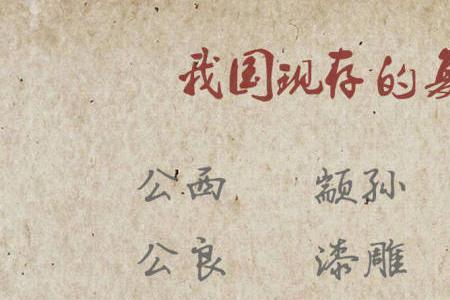 我国现存的
公西 颛孙
公良 漆雕